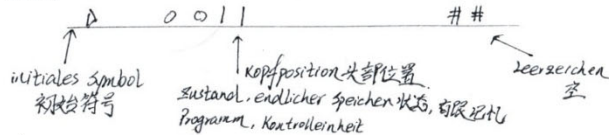 ▷ 0 0 1 1 # #
initiales Symbol
初始符号
Kopfposition 头部位置
Zustand, endlicher Speicher 状态, 有限记忆
Programm, Kontrolleinheit
Leerzeichen
空